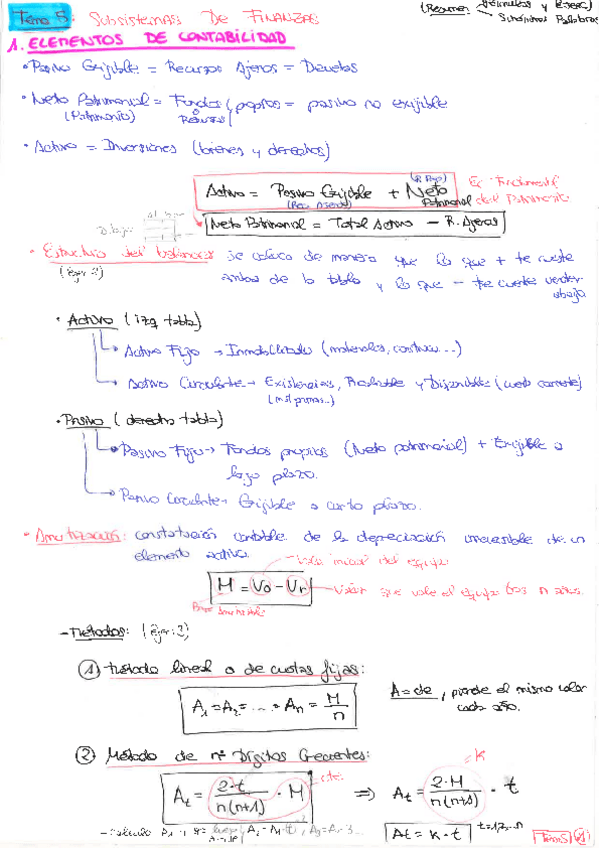 Tema 5: Subsistemas De Finanzas
(Resumen
1. ELEMENTOS DE CONTABILIDAD
• Pasivo Exigible = Recursos Ajenos = Deudas
• Neto Patrimonial = Fondos propios = pasivo no exigible
(Patrimonio) Recursos
• Activo = Inversiones (bienes y derechos)
Activo = Pasivo Exigible + Neto Patrimonial
(Rec. Ajenos)
Ec. Fundamental del Patrimonio
Neto Patrimonial = Total Activo - R. Ajenos
• Estructura del balance: se coloca de manera que lo que + te cueste
(Ejer 2) arriba de la tabla y lo que - te cueste vender abajo
• Activo (izq tabla)
Activo Fijo → Inmovilizado (materiales, construcc...)
Activo Circulante → Existencias, Realizable y Disponible (cuenta corriente)
(mat primas..)
• Pasivo (derecha tabla)
Pasivo Fijo → Fondos propios (Neto patrimonial) + Exigible a
largo plazo.
Pasivo Circulante → Exigible a corto plazo.
• Amortización: constatación contable de la depreciación irreversible de un
elemento activo.
Valor inicial del equipo
M = Vo - Vr
Valor que vale el equipo tras n años.
Base amortizable
- Métodos: (Ejer: 3)
① Método lineal o de cuotas fijas:
A1 = A2 = .... = An = M/n
A = cte, pierde el mismo valor
cada año.
② Método de nº Dígitos Crecientes:
At = 2·t/n(n+1) · M ⇒ At = 2·M/n(n+1) · t
cte.
= k
At = k · t
t=1,2..n
Tema 5 ①